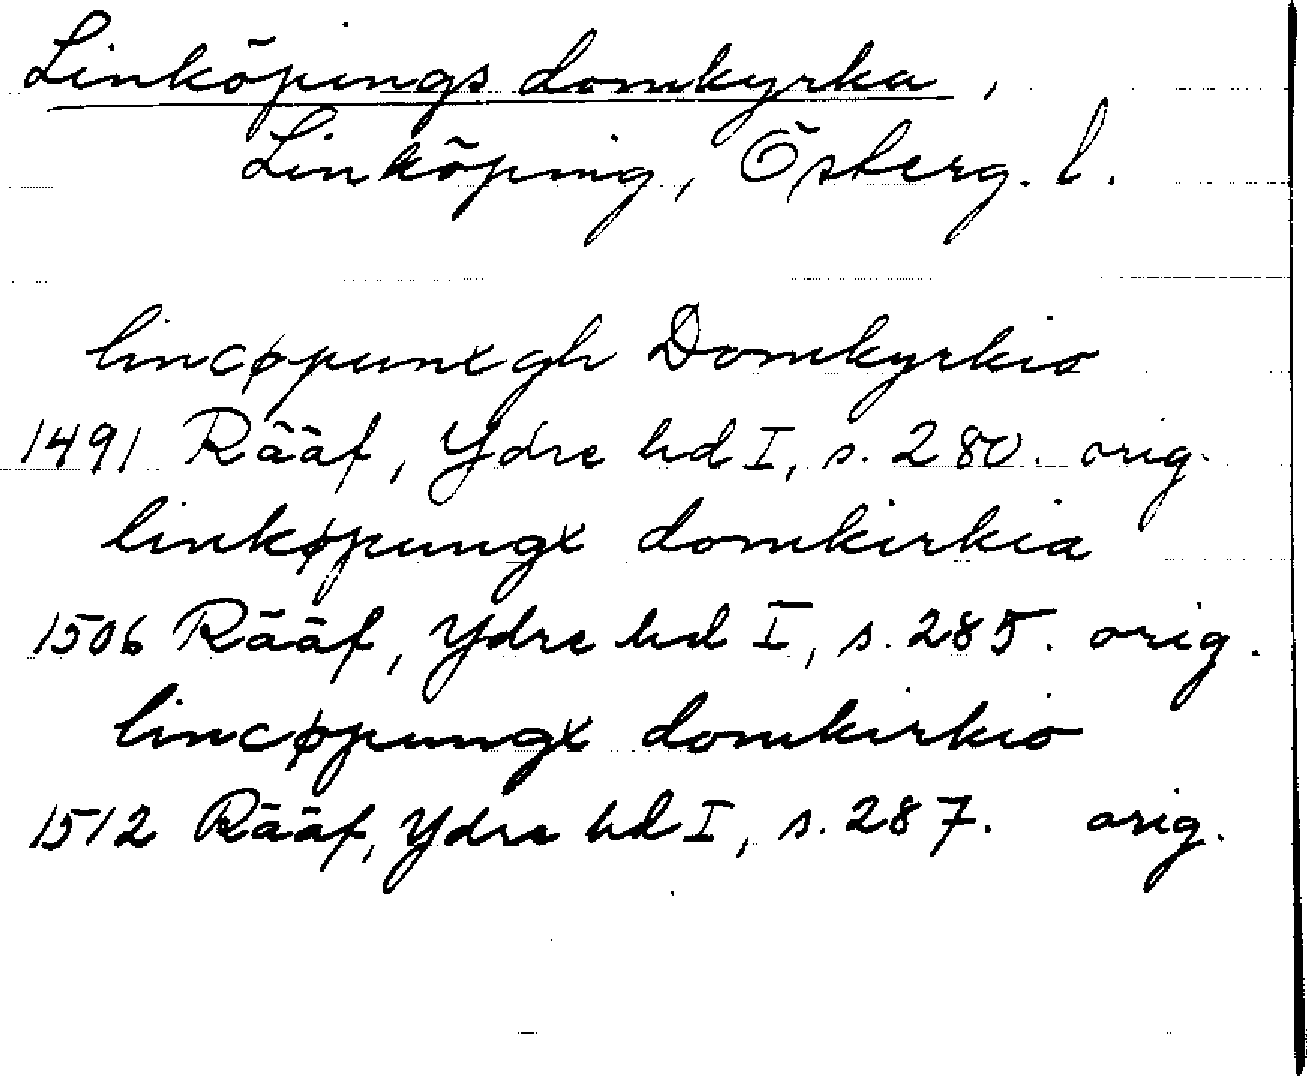 Linköpings domkyrka,
Linköping, Österg. l.
lincøpunxgh Domkyrkio
1491 Rääf, Ydre hd I, s. 280. orig.
linkøpungx domkirkia
1506 Rääf, Ydre hd I, s. 285. orig.
lincøpungx domkirkio
1512 Rääf, Ydre hd I, s. 287. orig.